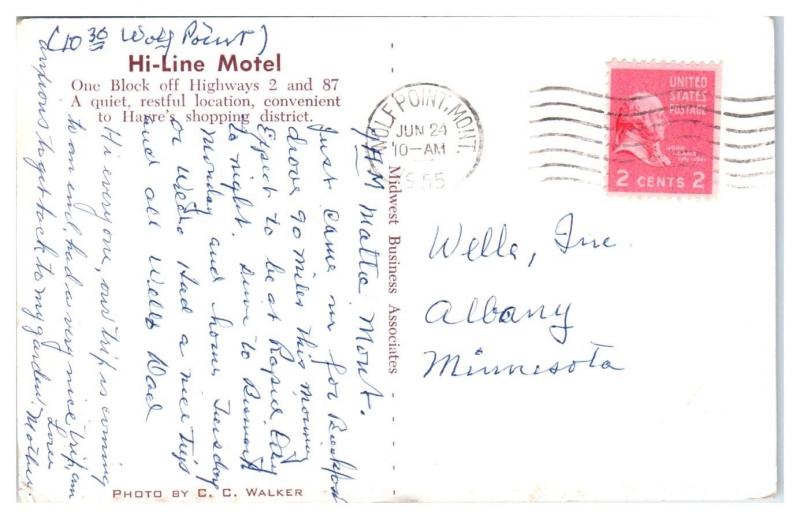 (10 30 Wolf Point)
Hi-Line Motel
One Block off Highways 2 and 87
A quiet, restful location, convenient
to Havre's shopping district.
7 AM Malta Mont.
Just came in for Breakfast
drove 90 miles this morning
Expect to be at Rapid City
to night. Drive to Bismark
Monday and home Tuesday
or Weds Had a nice trip
and all Well Dad
Hi everyone, our trip is coming
to an end, had a very nice trip, am
anxious to get back to my garden. Love
Mother.
PHOTO BY C. C. WALKER
Midwest Business Associates
WOLF POINT, MONT.
JUN 24
10-AM
1955
UNITED
STATES
POSTAGE
JOHN
ADAMS
2 CENTS 2
Wells, Inc.
Albany
Minnesota